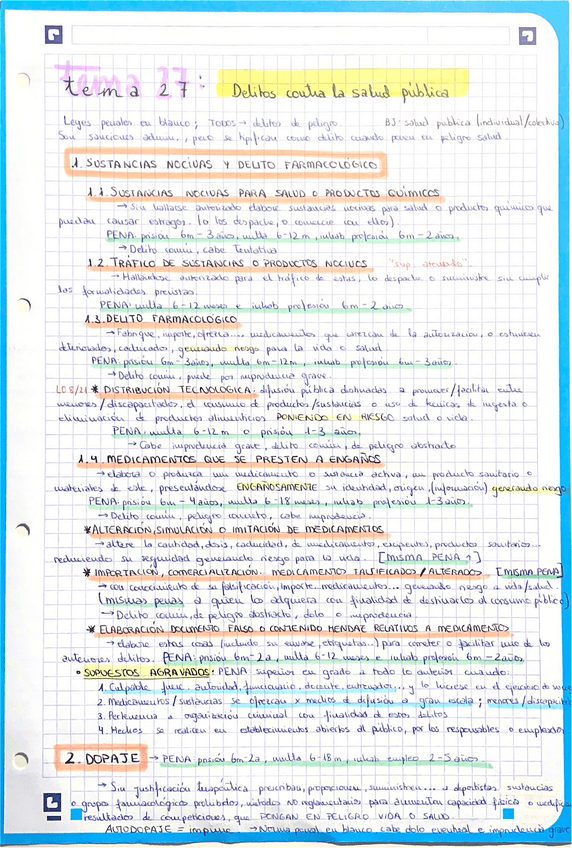 tema 27: Delitos contra la salud pública
Leyes penales en blanco; TODOS → delitos de peligro. BJ: salud publica (individual/colectiva)
Son sanciones admin., pero se tipifican como delito cuando ponen en peligro salud.
1. SUSTANCIAS NOCIVAS Y DELITO FARMACOLÓGICO
1.1. SUSTANCIAS NOCIVAS PARA SALUD O PRODUCTOS QUÍMICOS
→ Sin hallarse autorizado elabore sustancias nocivas para salud o productos químicos que
puedan causar estragos. (o los despache, o comercie con ellos)
PENA: prisión 6m-3años, multa 6-12m, inhab profesión 6m-2años.
→ Delito común, cabe Tentativa
1.2. TRÁFICO DE SUSTANCIAS O PRODUCTOS NOCIVOS
→ Hallándose autorizado para el tráfico de estas, lo despache o suministre sin cumplir
las formalidades previstas.
PENA: multa 6-12 meses e inhab profesión 6m-2 años
1.3. DELITO FARMACOLÓGICO
→ Fabrique, importe, ofrezca... medicamentos que carezcan de la autorización, o estuvieren
deteriorados, caducado, generando riesgo para la vida o salud.
PENA: prisión 6m-3años, multa 6m-12m, inhab profesión 6m-3años.
→ Delito común, puede por imprudencia grave.
LO 8/21 * DISTRIBUCIÓN TECNOLÓGICA: difusión pública destinados a promover/facilitar entre
menores/discapacitados, el consumo de productos/sustancias o uso de técnicas de ingesta o
eliminación de productos alimenticios PONIENDO EN RIESGO salud o vida.
PENA: multa 6-12 m o prisión 1-3 años.
→ Cabe imprudencia grave, delito común, de peligro abstracto
1.4. MEDICAMENTOS QUE SE PRESTEN A ENGAÑOS
→ elabora o produzca un medicamento o sustancia activa, un producto sanitario o
materiales de este, presentándose ENGAÑOSAMENTE su identidad, origen, (información) generando riesgo
PENA: prisión 6m-4años, multa 6-18 meses, inhab profesional 1-3 años.
→ Delito común, peligro concreto, cabe imprudencia.
* ALTERACIÓN, SIMULACIÓN O IMITACIÓN DE MEDICAMENTOS
→ altere la cantidad, dosis, caducidad, de medicamentos, excipientes, productos sanitarios...
reduciendo su seguridad generando riesgo para la vida. [MISMA PENA ↑]
* IMPORTACIÓN, COMERCIALIZACIÓN... MEDICAMENTOS FALSIFICADOS/ALTERADOS. [MISMA PENA]
→ con conocimiento de su falsificación, importe medicamentos... generando riesgo a vida/salud
(mismas penas a quien los adquiera con finalidad de destinarlos al consumo público)
→ Delito común, de peligro abstracto, dolo o imprudencia.
* ELABORACIÓN DOCUMENTO FALSO O CONTENIDO MENDAZ RELATIVOS A MEDICAMENTO
→ elabore estas cosas (incluido su envase, etiquetas...) para cometer o facilitar uno de los
anteriores delitos. PENA: prisión 6m-2a, multa 6-12 meses e inhab profesión 6m-2años.
• SUPUESTOS AGRAVADOS: PENA superior en grado a todo lo anterior cuando:
1. Culpable fuere: autoridad, funcionario, docente, entrenador... y lo hiciese en el ejercicio de
2. Medicamentos/sustancias se ofrezcan x medios de difusión a gran escala; menores/
3. Pertenencia a organización criminal con finalidad de estos delitos
4. Hechos se realicen en establecimientos abiertos al público, por los responsables o empleados
2. DOPAJE → PENA prisión 6m-2a, multa 6-18m, inhab empleo 2-5 años.
→ Sin justificación terapéutica prescriban, proporcionen, suministren... a deportistas, sustancias
o grupos farmacológicos prohibidos, métodos no reglamentarios para aumentar capacidad física o
resultados de competiciones, que PONGAN EN PELIGRO VIDA O SALUD.
AUTODOPAJE = impune. → Norma penal en blanco cabe dolo eventual e imprudencia grave